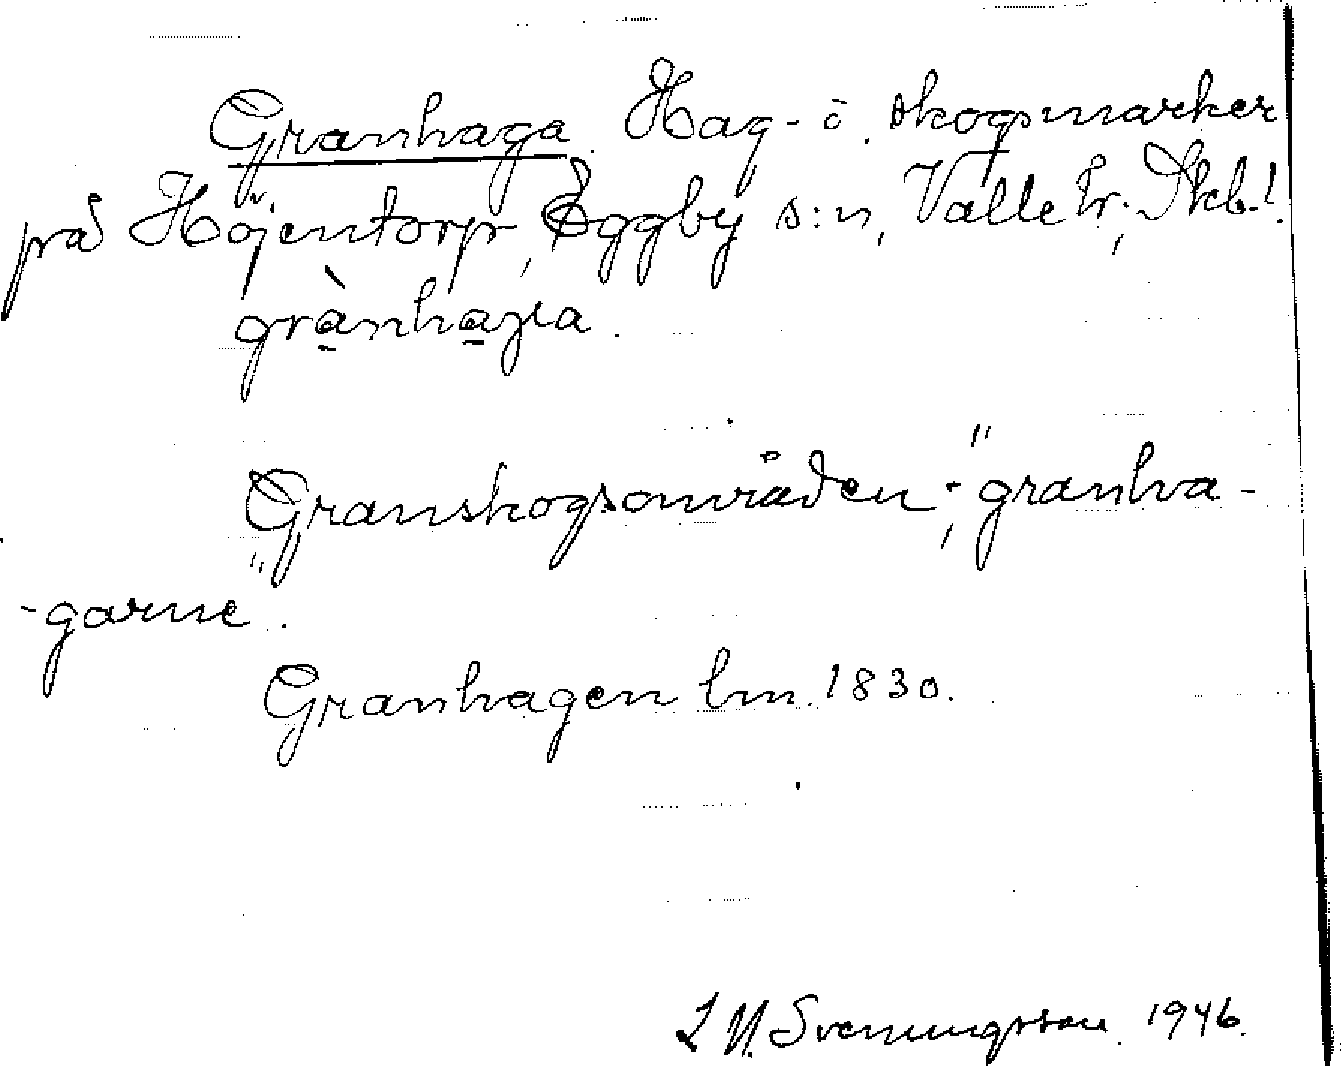 Granhaga. Hag- o. skogsmarker
på Höjentorp, Eggby s:n, Valle hr., Skb.l.
grànhaga.
Granskogsområden; "granha-
-garne".
Granhagen lm. 1830.
Svenungsson. 1946.